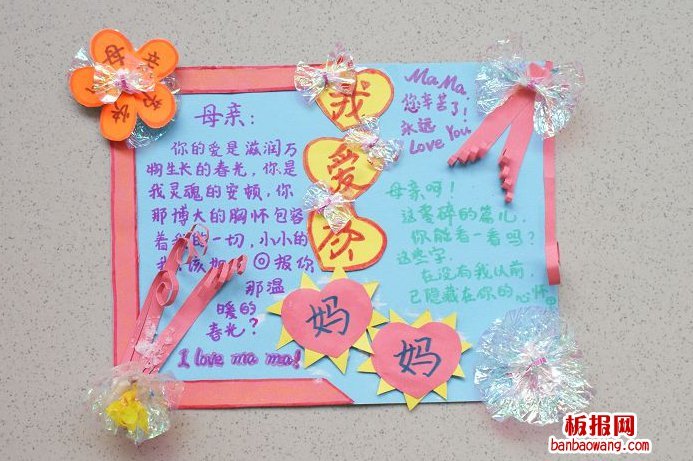 母亲
节
快
母亲：
你的爱是滋润万
物生长的春光，你是
我灵魂的安顿，你
那博大的胸怀包容
着我的一切，小小的
我该如何回报你
那温
暖的
春光？
I love ma ma!
我
爱
你
妈
妈
MaMa
您辛苦了！
永远
Love You
母亲呀！
这零碎的篇儿，
你能看一看吗？
这些字，
在没有我以前，
已隐藏在你的心怀
板报网
banbaowang.com